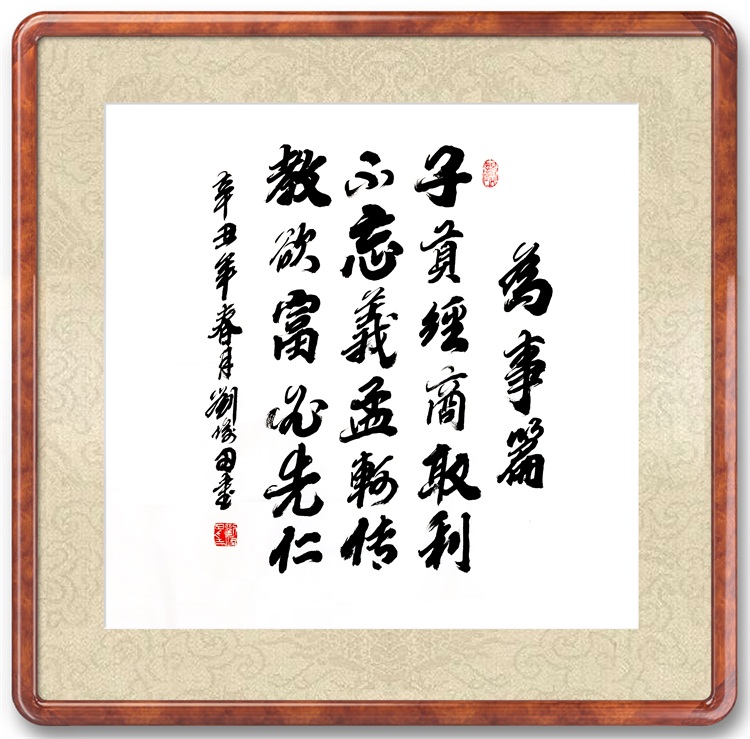 為事篇
子貢經商取利
不忘義孟軻传
教欲富必先仁
辛丑年春月劉俊田書